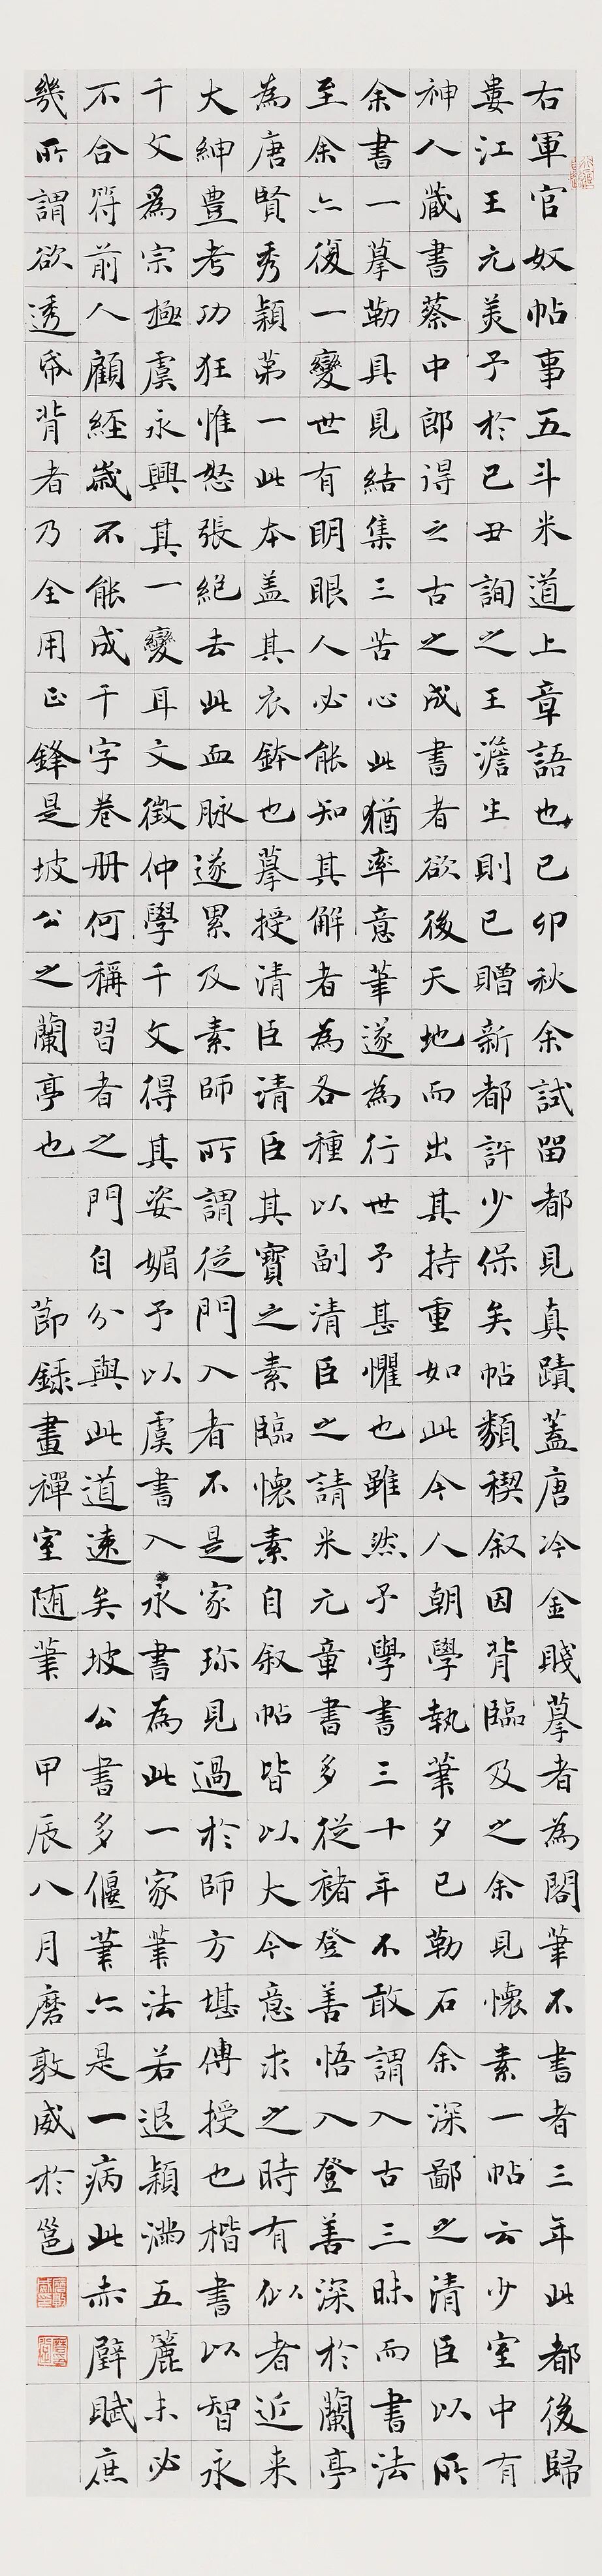 右軍官奴帖事五斗米道上章語也已卯秋余試留都見真蹟蓋唐冷金賤摹者為閣筆不書者三年此都後歸
婁江王元美予於已丑詢之王澹生則已贈新都許少保矣帖類稧叙因背臨及之余見懷素一帖云少室中有
神人藏書蔡中郎得之古之成書者欲後天地而出其持重如此今人朝學執筆夕已勒石余深鄙之清臣以所
余書一摹勒具見結集三苦心此猶率意筆遂為行世予甚懼也雖然予學書三十年不敢謂入古三昧而書法
至余亦復一變世有明眼人必能知其解者為各種以副清臣之請米元章書多從褚登善悟入登善深於蘭亭
為唐賢秀穎第一此本盖其衣鉢也摹授清臣清臣其寶之素臨懷素自叙帖皆以大令意求之時有似者近来
大紳豊考功狂惟怒張絕去此血脉遂累及素師所謂従門入者不是家珎見過於師方堪傳授也楷書以智永
千文爲宗極虞永興其一變耳文徵仲學千文得其姿媚予以虞書入永書為此一家筆法若退穎滿五簏未必
不合符前人顧經歲不能成千字卷册何稱習者之門自分與此道遠矣坡公書多偃筆亦是一病此赤壁賦庶
幾所謂欲透帋背者乃全用正鋒是坡公之蘭亭也 節錄畫禪室随筆 甲辰八月磨敦威於邕